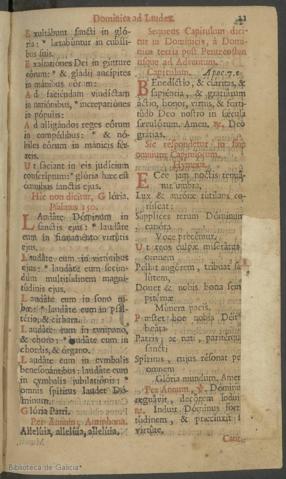 Dominica ad Laudes. 21
Exultábunt sancti in gló-
ria: * lætabúntur in cubíli-
bus suis.
Exaltatiónes Dei in gútture
eórum: * & gládij ancípites
in mánibus eórum:
Ad faciéndam vindíctam
in natiónibus, * increpatiónes
in pópulis:
Ad alligándos reges eórum
in compédibus: * & nó-
biles eórum in mánicis fér-
reis.
Ut fáciant in eis judícium
conscríptum: * glória hæc est
ómnibus sanctis ejus.
Hic non dicitur, Glória.
Psalmus 150.
Laudáte Dóminum in
sanctis ejus: * laudáte
eum in firmaménto virtútis
ejus.
Laudáte eum in virtútibus
ejus: * laudáte eum secún-
dum multitúdinem magni-
túdinis ejus.
Laudáte eum in sono tu-
bæ: * laudáte eum in psal-
tério, & cíthara.
Laudáte eum in tympano,
& choro: * laudáte eum in
chordis, & órgano.
Laudáte eum in cymbalis
benesonántibus: laudáte eum
in cymbalis jubilatiónis: *
omnis spíritus laudet Dó-
minum.
Glória Patri.
Per Annum, Antiphona.
Allelúia, allelúia, allelúia.
Sequens Capitulum dici-
tur in Dominicis, à Domi-
nica tertia post Pentecosten
usque ad Adventum.
Capitulum. Apoc. 7.
Benedíctio, & cláritas, &
sapiéntia, & gratiárum
áctio, honor, virtus, & forti-
túdo Deo nostro in sæcula
sæculórum. Amen. ℟. Deo
grátias.
Sic respondetur in fine
omnium Capitulorum.
Hymnus.
Ecce jam noctis tenuá-
tur umbra,
Lux & auróræ rútilans co-
rúscat:
Súpplices rerum Dóminum
canóra
Voce precémur.
Ut reos culpæ miserátus
omnem
Pellat angórem, tríbuat sa-
lútem,
Donet & nobis bona sem-
pitérnæ
Múnera pacis.
Præstet hoc nobis Déit
beáta
Patris, ac nati, paritérque
sancti
Spíritus, cujus résonat pe
omnem
Glória mundum. Amen
Per Annum, ℣. Dóminu
regnávit, decórem indu
℟. Induit Dóminus for-
titúdinem, & præcínxit s
virtúte.
Cant.
Biblioteca de Galicia